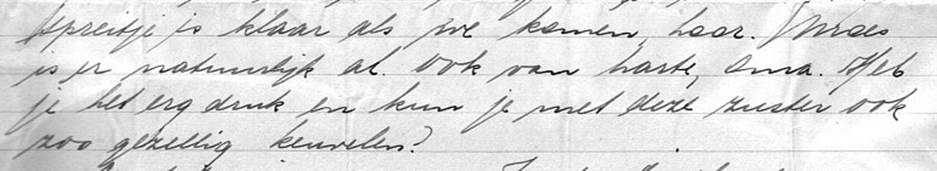 spreitje is klaar als we komen, hoor. Vroes
is er natuurlijk al. Ook van harte, Oma. Heb
je het erg druk en kun je met deze zuster ook
zoo gezellig keuvelen?